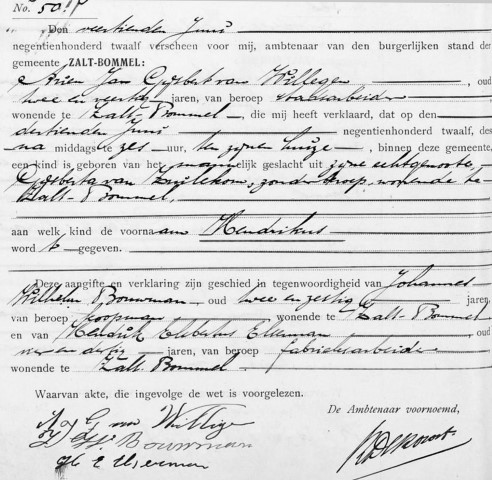 No. 50
Den veertienden Juni
negentienhonderd twaalf verscheen voor mij, ambtenaar van den burgerlijken stand der
gemeente ZALT-BOMMEL:
Arien Jan Gijsbert van Willegen, oud
twee en veertig jaren, van beroep stadsarbeider
wonende te Zalt-Bommel, die mij heeft verklaard, dat op den
dertienden Juni negentienhonderd twaalf, des
na middags te zes uur, ten zijnen huize, binnen deze gemeente,
een kind is geboren van het mannelijk geslacht uit zijne echtgenoote,
Gijsberta van Zuilekom, zonder beroep, wonende te
Zalt-Bommel,
aan welk kind de voornaam Hendrikus
word t gegeven.
Deze aangifte en verklaring zijn geschied in tegenwoordigheid van Johannes
Wilhelm Bouwman oud twee en zestig jaren,
van beroep koopman wonende te Zalt-Bommel
en van Hendrik Elbertus Ekeman, oud
en dertig jaren, van beroep fabrieksarbeider
wonende te Zalt-Bommel
Waarvan akte, die ingevolge de wet is voorgelezen.
De Ambtenaar voornoemd,
A J G van Willige
Bouwman